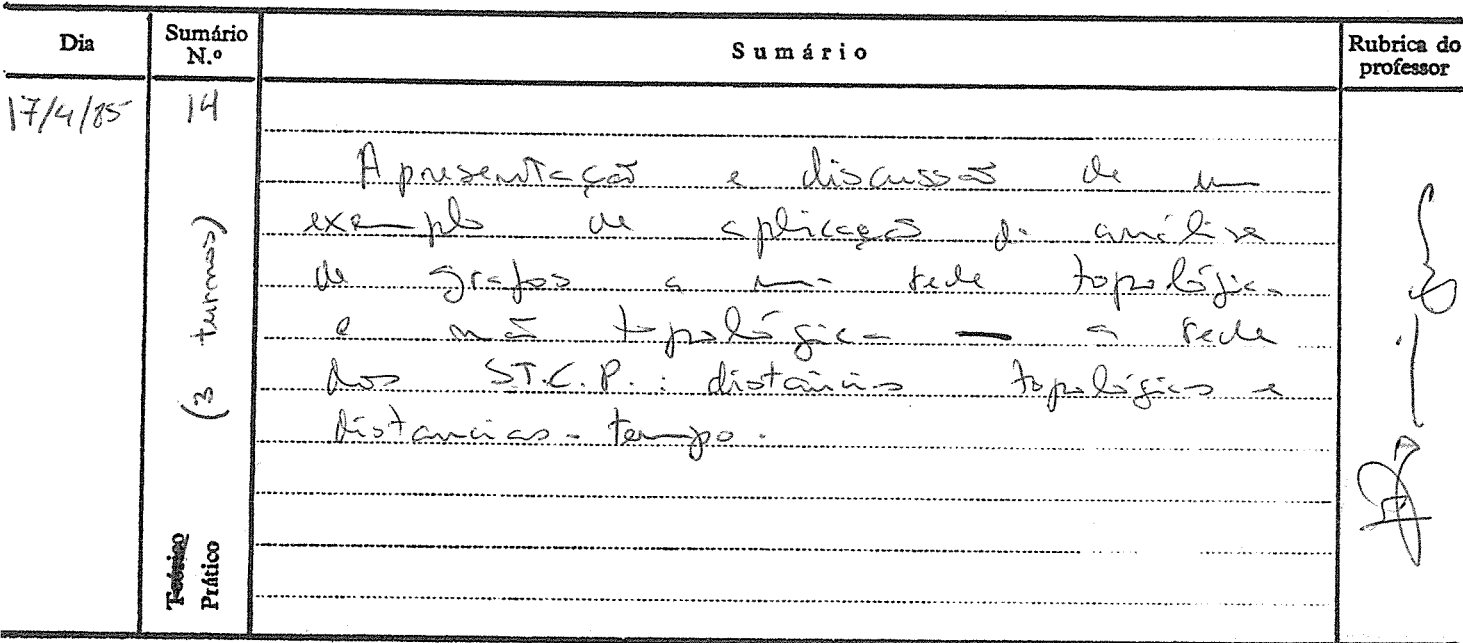 Dia
Sumário N.º
Sumário
Rubrica do professor
17/4/85
14
(3 turnos)
Teórico
Prático
Apresentação e discussão de um
exemplo de aplicação da análise
de grafos a uma rede topológica
e não topológica — a rede
dos S.T.C.P. : distâncias topológicas e
distancias-tempo.